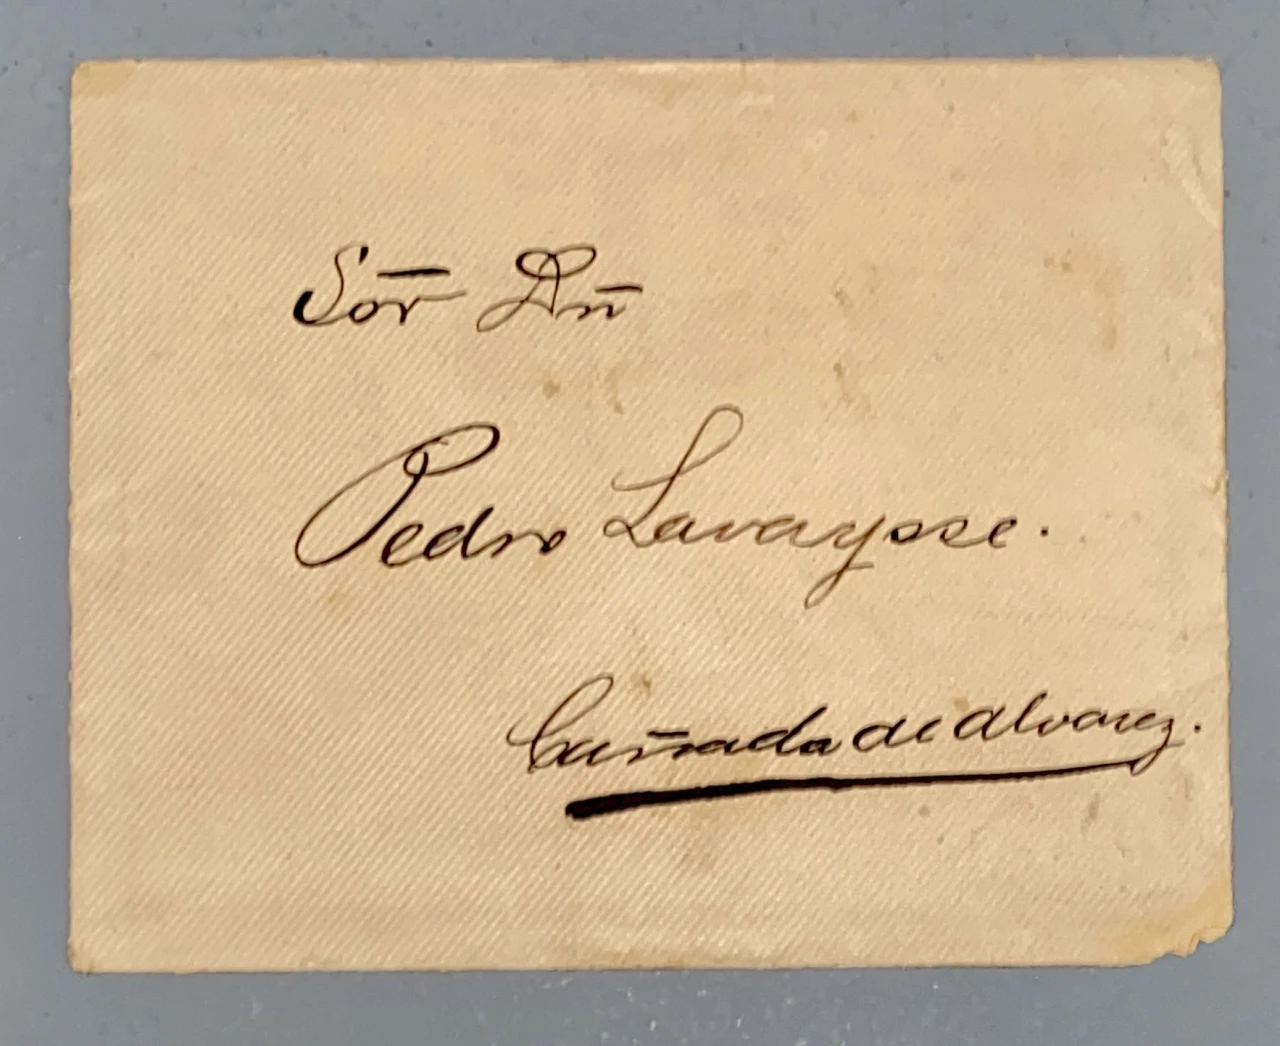 Sor Dn
Pedro Lavaysse.
Cañada de Alvarez.